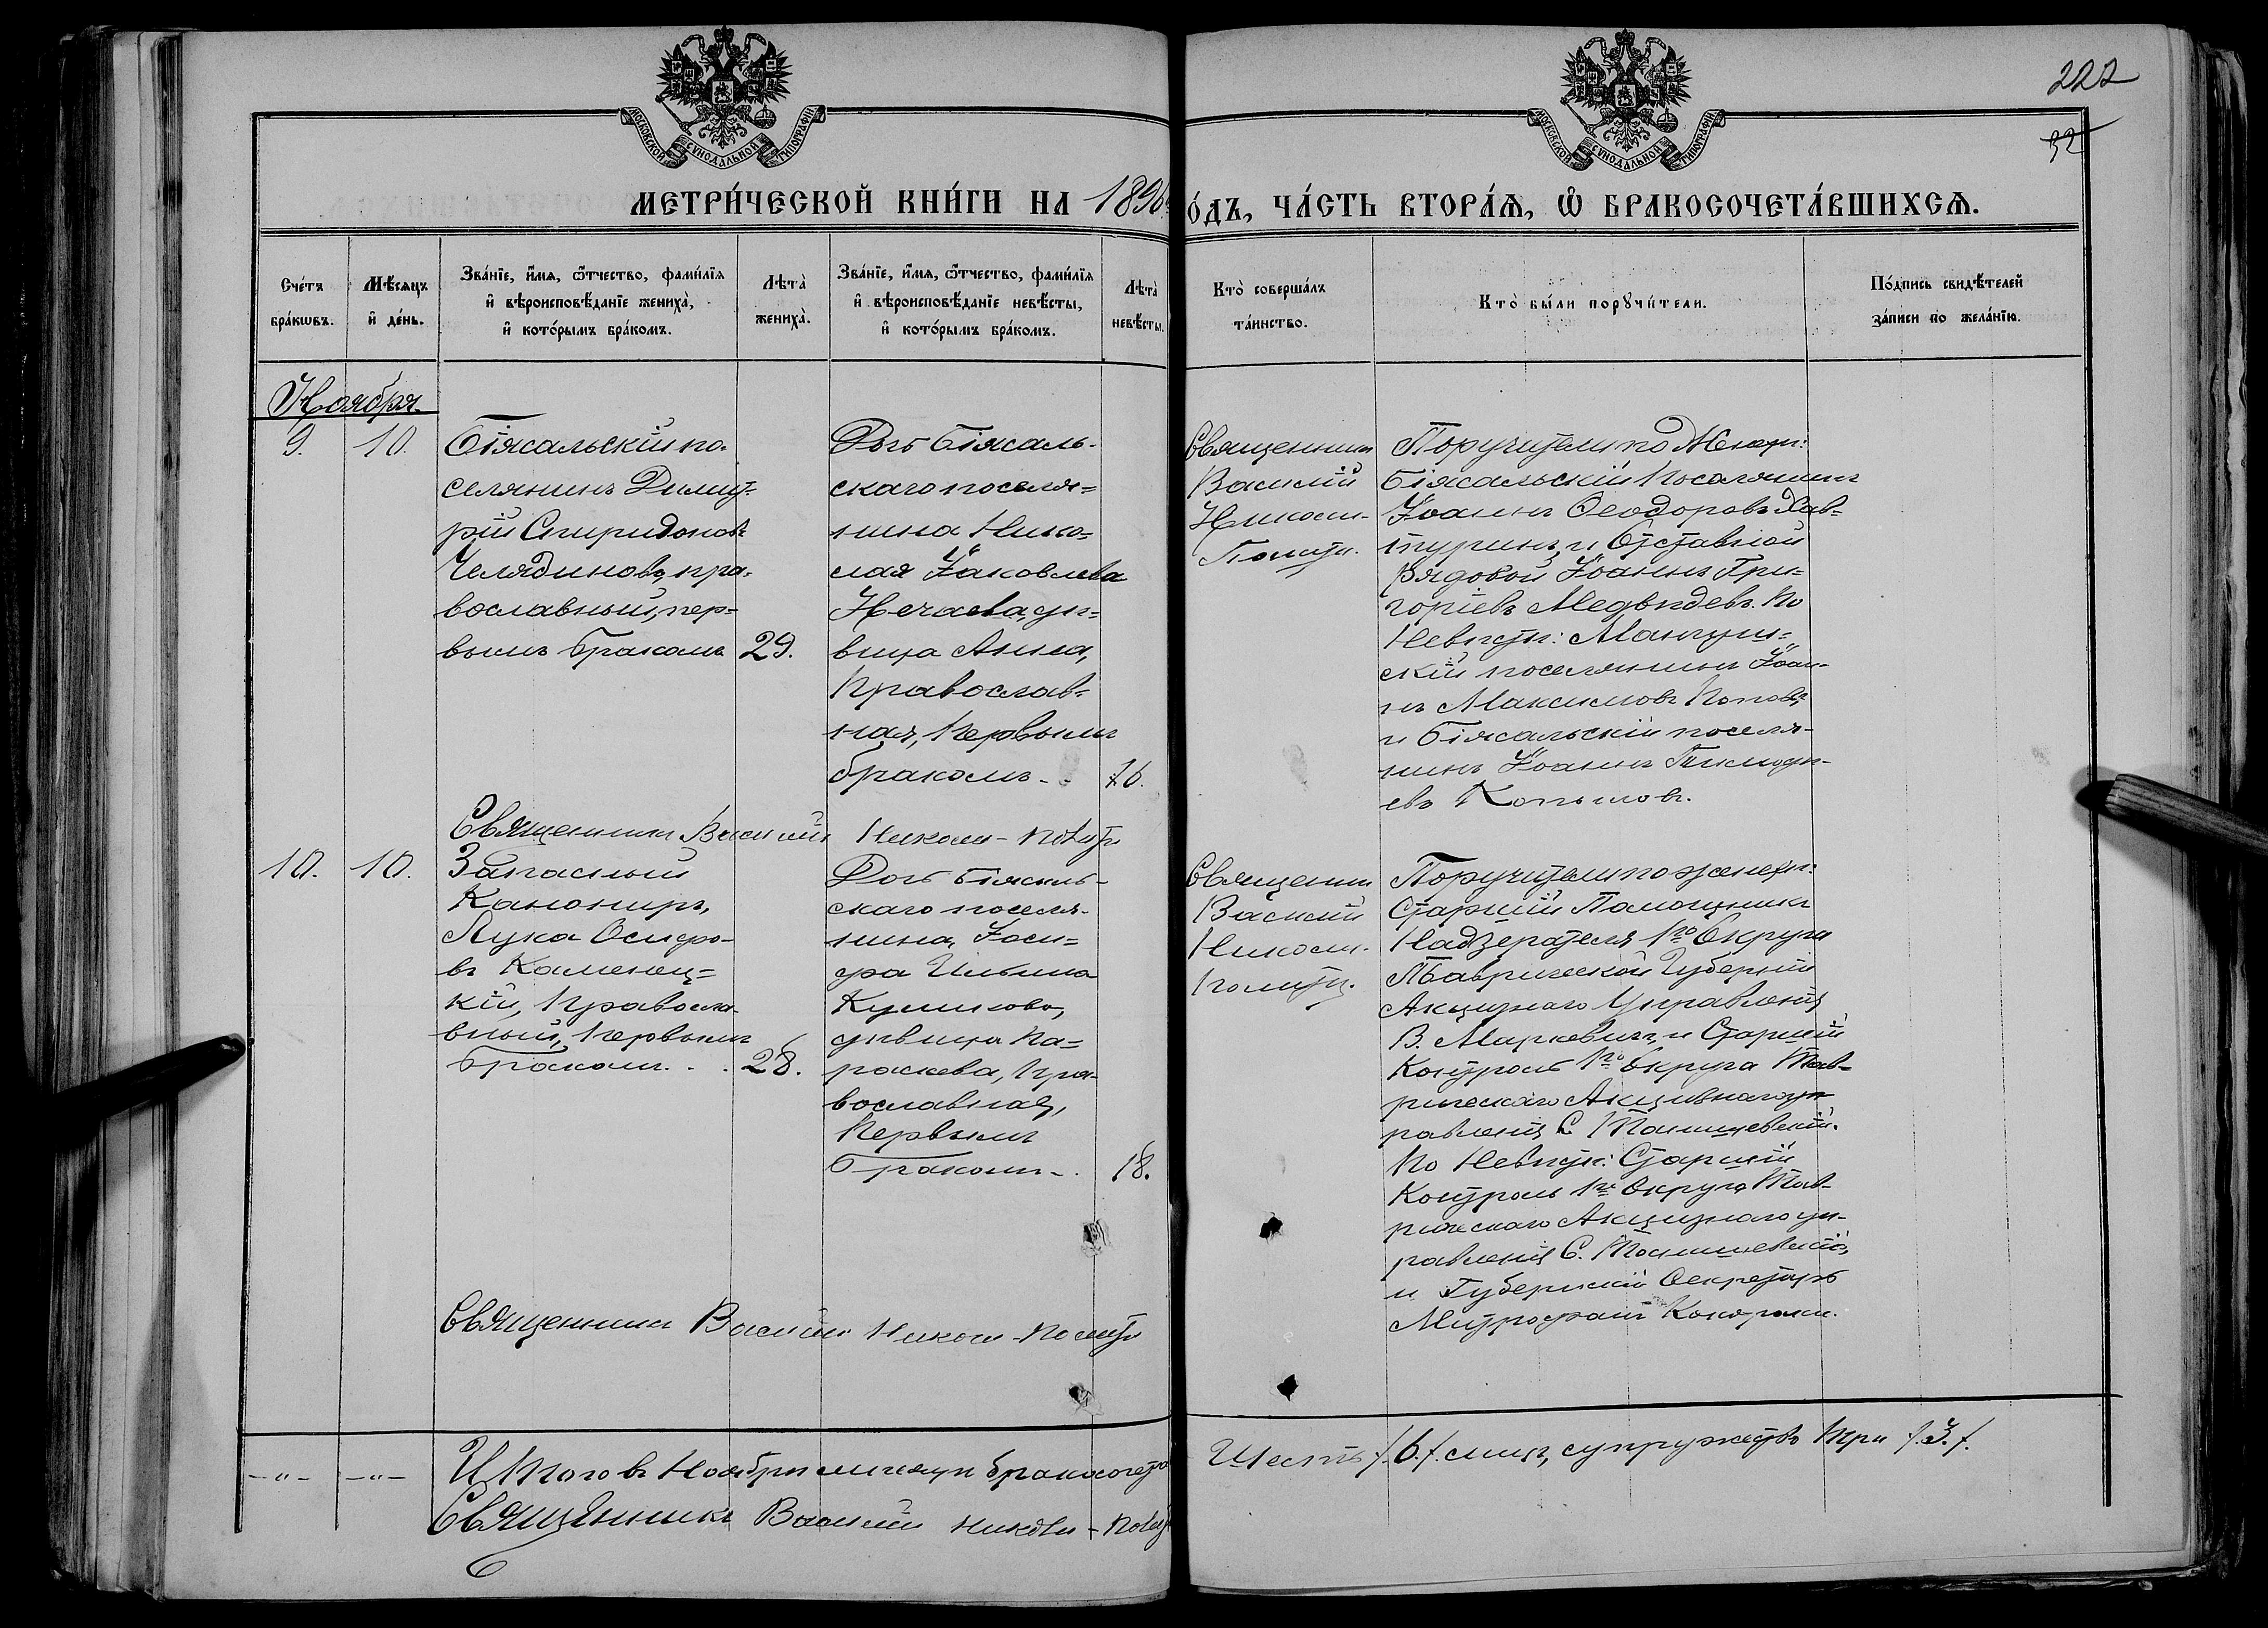 222
32
МОСКОВСКОЙ СѴНОДАЛЬНОЙ ТИПОГРАФІИ
МОСКОВСКОЙ СѴНОДАЛЬНОЙ ТИПОГРАФІИ
МЕТРИ́ЧЕСКОЙ КНИ́ГИ НА 1896 ГО́ДЪ, ЧА́СТЬ ВТОРА́Ѧ, Ѽ БРАКОСОЧЕТА́ВШИХСѦ.
Сче́тъ
бра́кѡвъ.
Мѣ́сяцъ
и҆ де́нь.
Зва́нїе, и҆́мя, ѻ҆́тчество, фами́лїя
и҆ вѣроисповѣ́данїе жениха̀,
и҆ кото́рымъ бра́комъ.
Лѣта̀
жениха̀.
Зва́нїе, и҆́мя, ѻ҆́тчество, фами́лїя
и҆ вѣроисповѣ́данїе невѣ́сты,
и҆ кото́рымъ бра́комъ.
Лѣта̀
невѣ́сты.
Кто̀ соверша́лъ
та́инство.
Кто̀ бы́ли порꙋчи́тели.
По́дпись свидѣ́телей
за́писи по жела́нїю.
Ноября
9.
10.
Біясальскій по-
селянинъ Димит-
рій Спиридоновъ
Челядиновъ, пра-
вославный, пер-
вымъ бракомъ
29.
Дочь Біясаль-
скаго поселя-
нина Нико-
лая Іаковлева
Нечаева, дѣ-
вица Анна,
Православ-
ная, Первымъ
бракомъ.
16.
Священникъ
Василій
Никола-
Поручители по Жениху:
Біясальскій Поселянинъ
Іоаннъ Ѳеодоровъ Хав-
туринъ, и Отставной
Рядовой Іоаннъ Гри-
горіевъ Медвѣдевъ. По
Невѣстѣ: Мангуш-
скій поселянинъ Іоан-
нъ Максимовъ Поповъ,
и Біясальскій поселя-
нинъ Іоаннъ Тимоѳе-
евъ Копыловъ.
Священникъ Василій
10.
10.
Запасный
Канониръ,
Лука Осифо-
въ Каменец-
кій, Правосла-
вный, Первымъ
бракомъ.
28.
Дочь Біясаль-
скаго поселя-
нина, Іоси-
фа Ильина
Куликова,
дѣвица Па-
раскева, Пра-
вославная,
Первымъ
бракомъ.
18.
Священникъ
Василій
Поручители по жениху:
Старшій Помощникъ
Надзирателя 1го Округа
Таврической Губерніи
Акцизнаго Управленія
В. Маркевичъ, и Старшій
Контроль 1го Округа Тав-
рическаго Акцизнаго уп-
равленія С.
По Невѣстѣ: Старшій
Контроль 1го Округа Тав-
рическаго Акцизнаго уп-
равленія С.
и Губернскій Секретарь
Митрофанъ
Священникъ Василій
Итого въ Ноябрѣ мѣсяцѣ бракосочета
Шесть /.6./. лицъ, супружествъ три /.3./.
Священникъ Василій